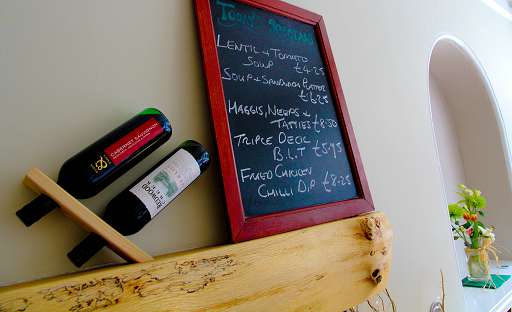 TODAY SPECIALS
LENTIL + TOMATO
SOUP £4.25
SOUP + SANDWICH PLATTER
£6.25
HAGGIS, NEEPS +
TATTIES £8.50
TRIPLE DECK
B.L.T £5.95
FRIED CHICKEN
CHILLI DIP £8.25
CABERNET SAUVIGNON